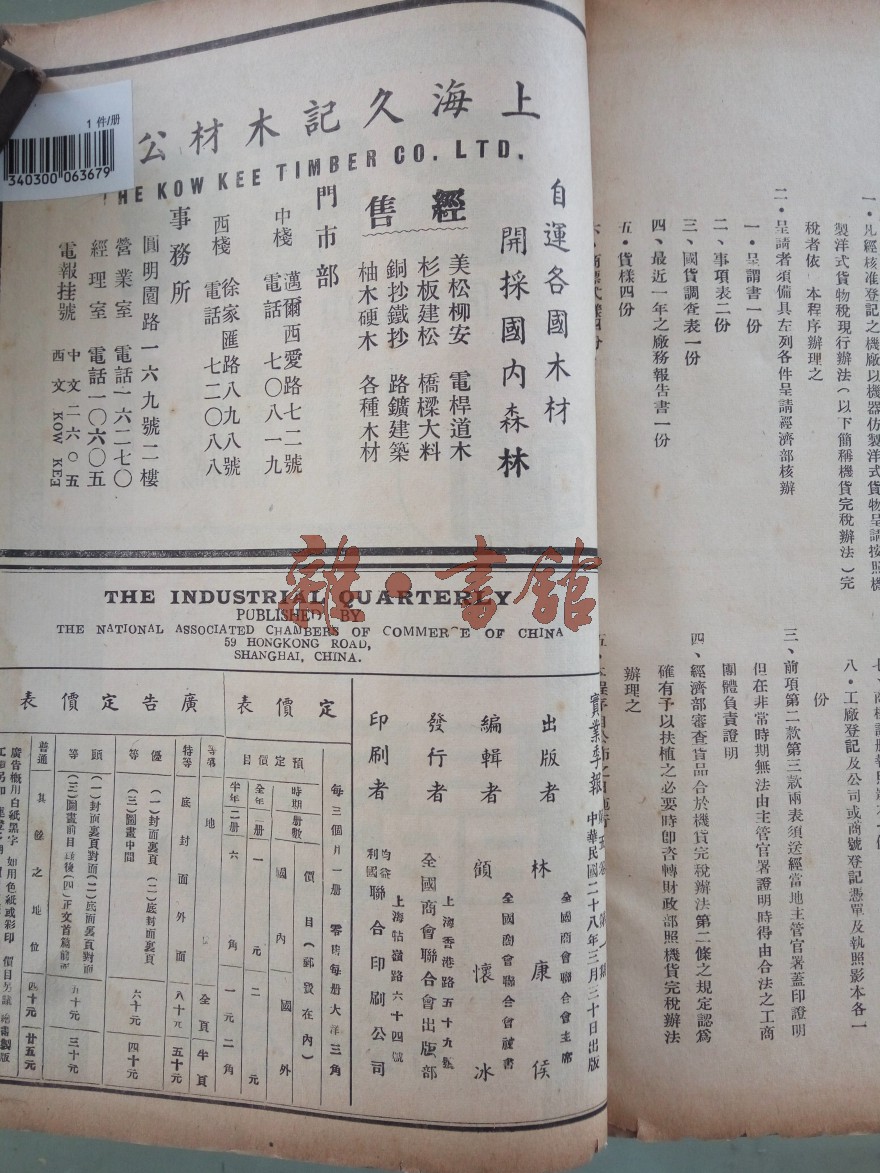 1 件/册
340300 063679
上海久記木材公
HE KOW KEE TIMBER CO. LTD.
自運各國木材
開採國內森林
經售
美松柳安 電桿道木
杉板建松 橋樑大料
銅抄鐵抄 路鑛建築
柚木硬木 各種木材
門市部
中棧 邁爾西愛路七二號
電話 七〇八一九
西棧 徐家匯路八九八號
電話 七二〇八八
事務所
圓明園路一六九號二樓
營業室 電話一六二七〇
經理室 電話一〇六〇五
電報挂號 中文二六〇五
西文 KOW KEE
雜·書館
THE INDUSTRIAL QUARTERLY
PUBLISHED BY
THE NATIONAL ASSOCIATED CHAMBERS OF COMMERCE OF CHINA
59 HONGKONG ROAD,
SHANGHAI, CHINA.
實業季報
中華民國二十八年三月三十日出版
出版者 林康侯
全國商會聯合會主席
編輯者 顧懷冰
全國商會聯合會秘書
發行者 全國商會聯合會出版部
上海香港路五十九號
印刷者 聯合印刷公司
上海牯嶺路六十四號
定價表
每三個月一冊 零售每冊大洋三角
預定價目
時期 冊數 價目(郵費在內)
國內 國外
全年 四冊 一元 二元
半年 二冊 六角 一元二角
廣告定價表
等第 地位 全頁 半頁
特等 底封面外面 八十元 五十元
優等 (一)封面裏頁 (二)底封面裏頁
(三)圖畫中間 六十元 四十元
頭等 (一)封面裏頁對面(二)底面裏頁對面
(三)圖畫前目錄後(四)正文首篇前面 五十元 三十元
普通 其餘之地位 四十元 廿五元
廣告概用白紙黑字 如用色紙或彩印 價目另議 繪畫製版
一•凡經核准登記之機廠以機器仿製洋式貨物呈請按照機
製洋式貨物稅現行辦法(以下簡稱機貨完稅辦法)完
稅者依 本程序辦理之
二•呈請者須備具左列各件呈請經濟部核辦
一•呈謂書一份
二、事項表二份
三、國貨調查表一份
四、最近一年之廠務報告書一份
五•貨樣四份
八•工廠登記及公司或商號登記憑單及執照影本各一
份
三、前項第二款第三款兩表須送經當地主管官署蓋印證明
但在非常時期無法由主管官署證明時得由合法之工商
團體負責證明
四、經濟部審查貨品合於機貨完稅辦法第二條之規定認爲
確有予以扶植之必要時卽咨轉財政部照機貨完稅辦法
辦理之